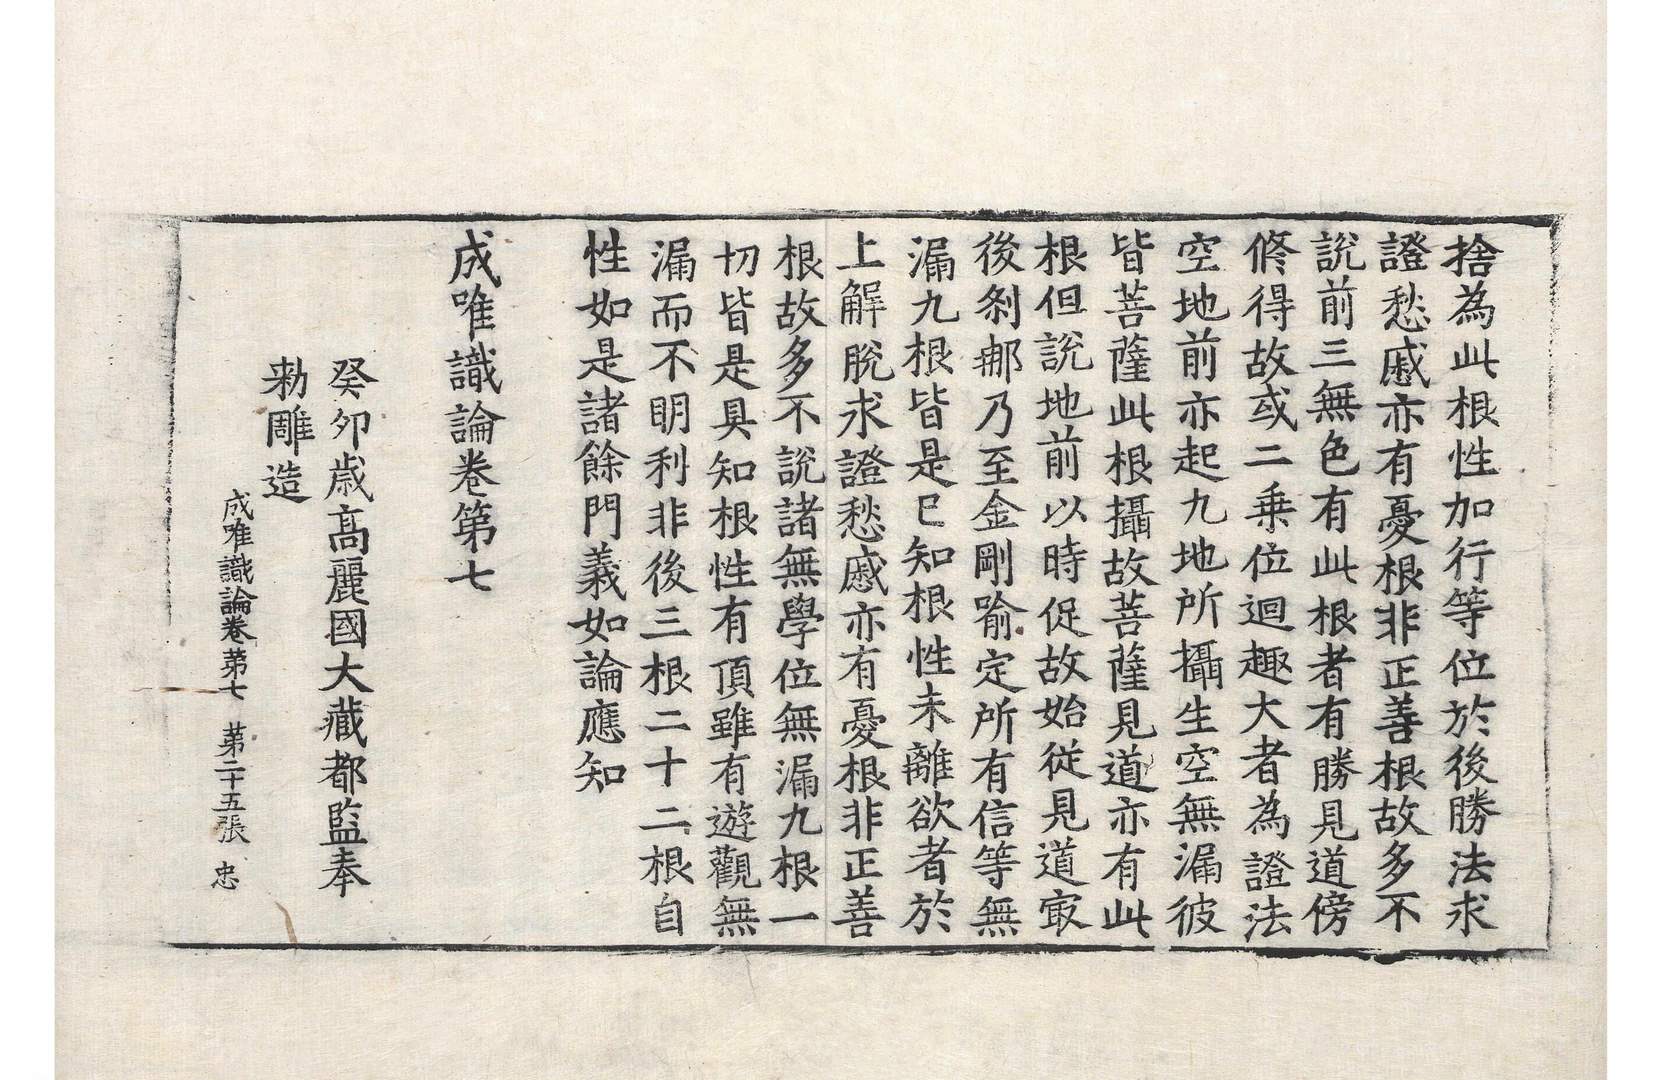 捨為此根性加行等位於後勝法求
證愁慼亦有憂根非正善根故多不
說前三無色有此根者有勝見道傍
修得故或二乗位迴趣大者為證法
空地前亦起九地所攝生空無漏彼
皆菩薩此根攝故菩薩見道亦有此
根但說地前以時促故始從見道㝡
後刹那乃至金剛喻定所有信等無
漏九根皆是已知根性未離欲者於
上解脫求證愁慼亦有憂根非正善
根故多不說諸無學位無漏九根一
切皆是具知根性有頂雖有遊觀無
漏而不明利非後三根二十二根自
性如是諸餘門義如論應知
成唯識論卷第七
癸卯歲高麗國大藏都監奉
勑雕造
成唯識論卷第七 第二十五張 忠